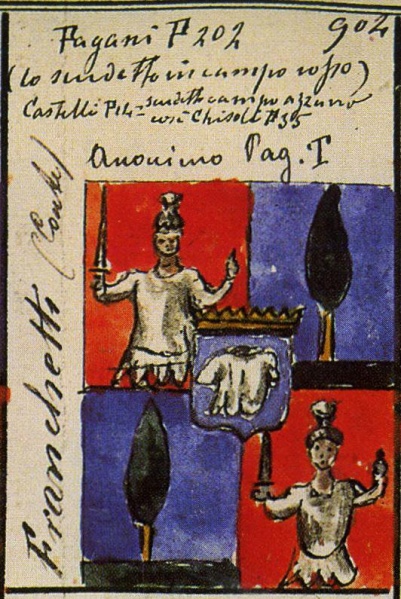 Pagani P 202
902
(lo scudetto in campo rosso)
Castelli P14 = scudetto campo azzurro
così Chisole P 35
Anonimo Pag. I
Franchetti (Conte)